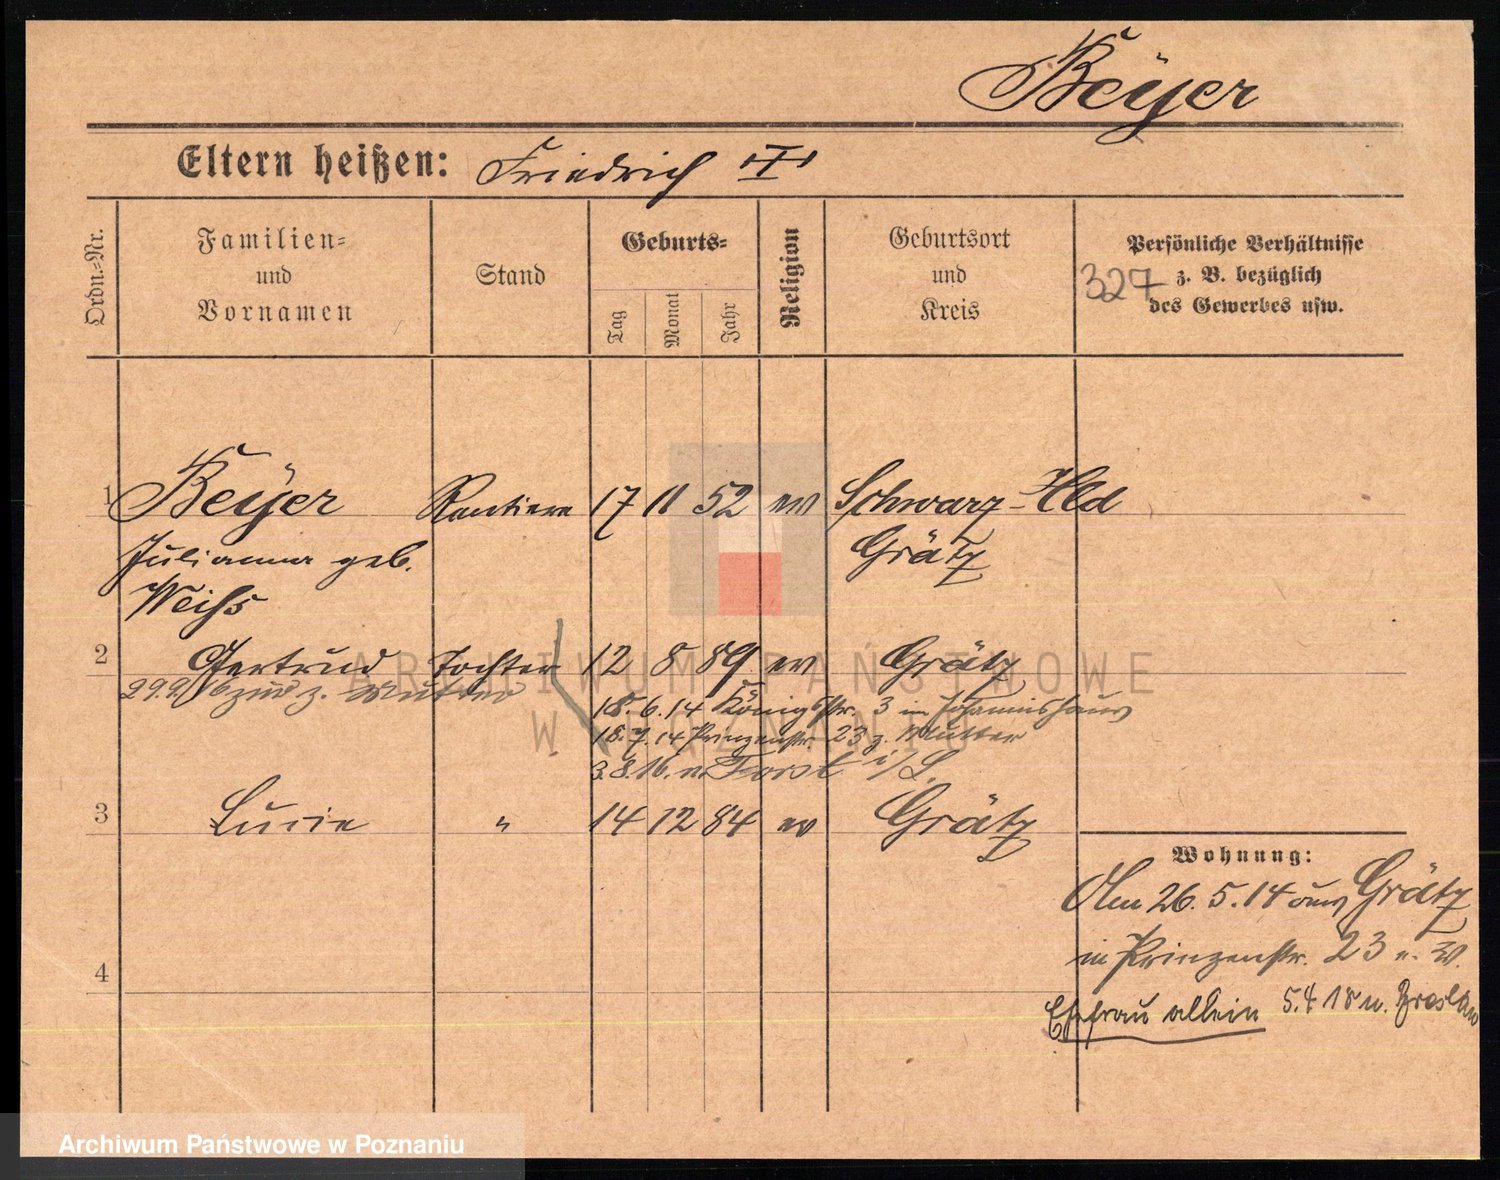 Beÿer
Eltern heißen: Friedrich "I"
Ordn.-Nr.
Familien-
und
Vornamen
Stand
Geburts-
Tag
Monat
Jahr
Religion
Geburtsort
und
Kreis
Persönliche Verhältnisse
z. B. bezüglich
des Gewerbes usw.
327
1 Beÿer Rentiere 17 11 52 ev Schwarz-Hld
Julianna geb. Grätz
Weihs
2 Gertrud Tochter 12 8 89 ev Grätz
29.9.16 z. Mutter
18.6.14 Königstr. 3 im Johannishaus
18.7.14 Prinzenstr. 23 z. Mutter
3.8.16. n. Forst i/L.
3 Lucie " 14 12 84 ev Grätz
Wohnung:
Am 26.5.14 aus Grätz
in Prinzenstr. 23 n. W.
4
Ehefrau allein 5.4 18 n. Breslau
ARCHIWUM PAŃSTWOWE
W POZNANIU
Archiwum Państwowe w Poznaniu